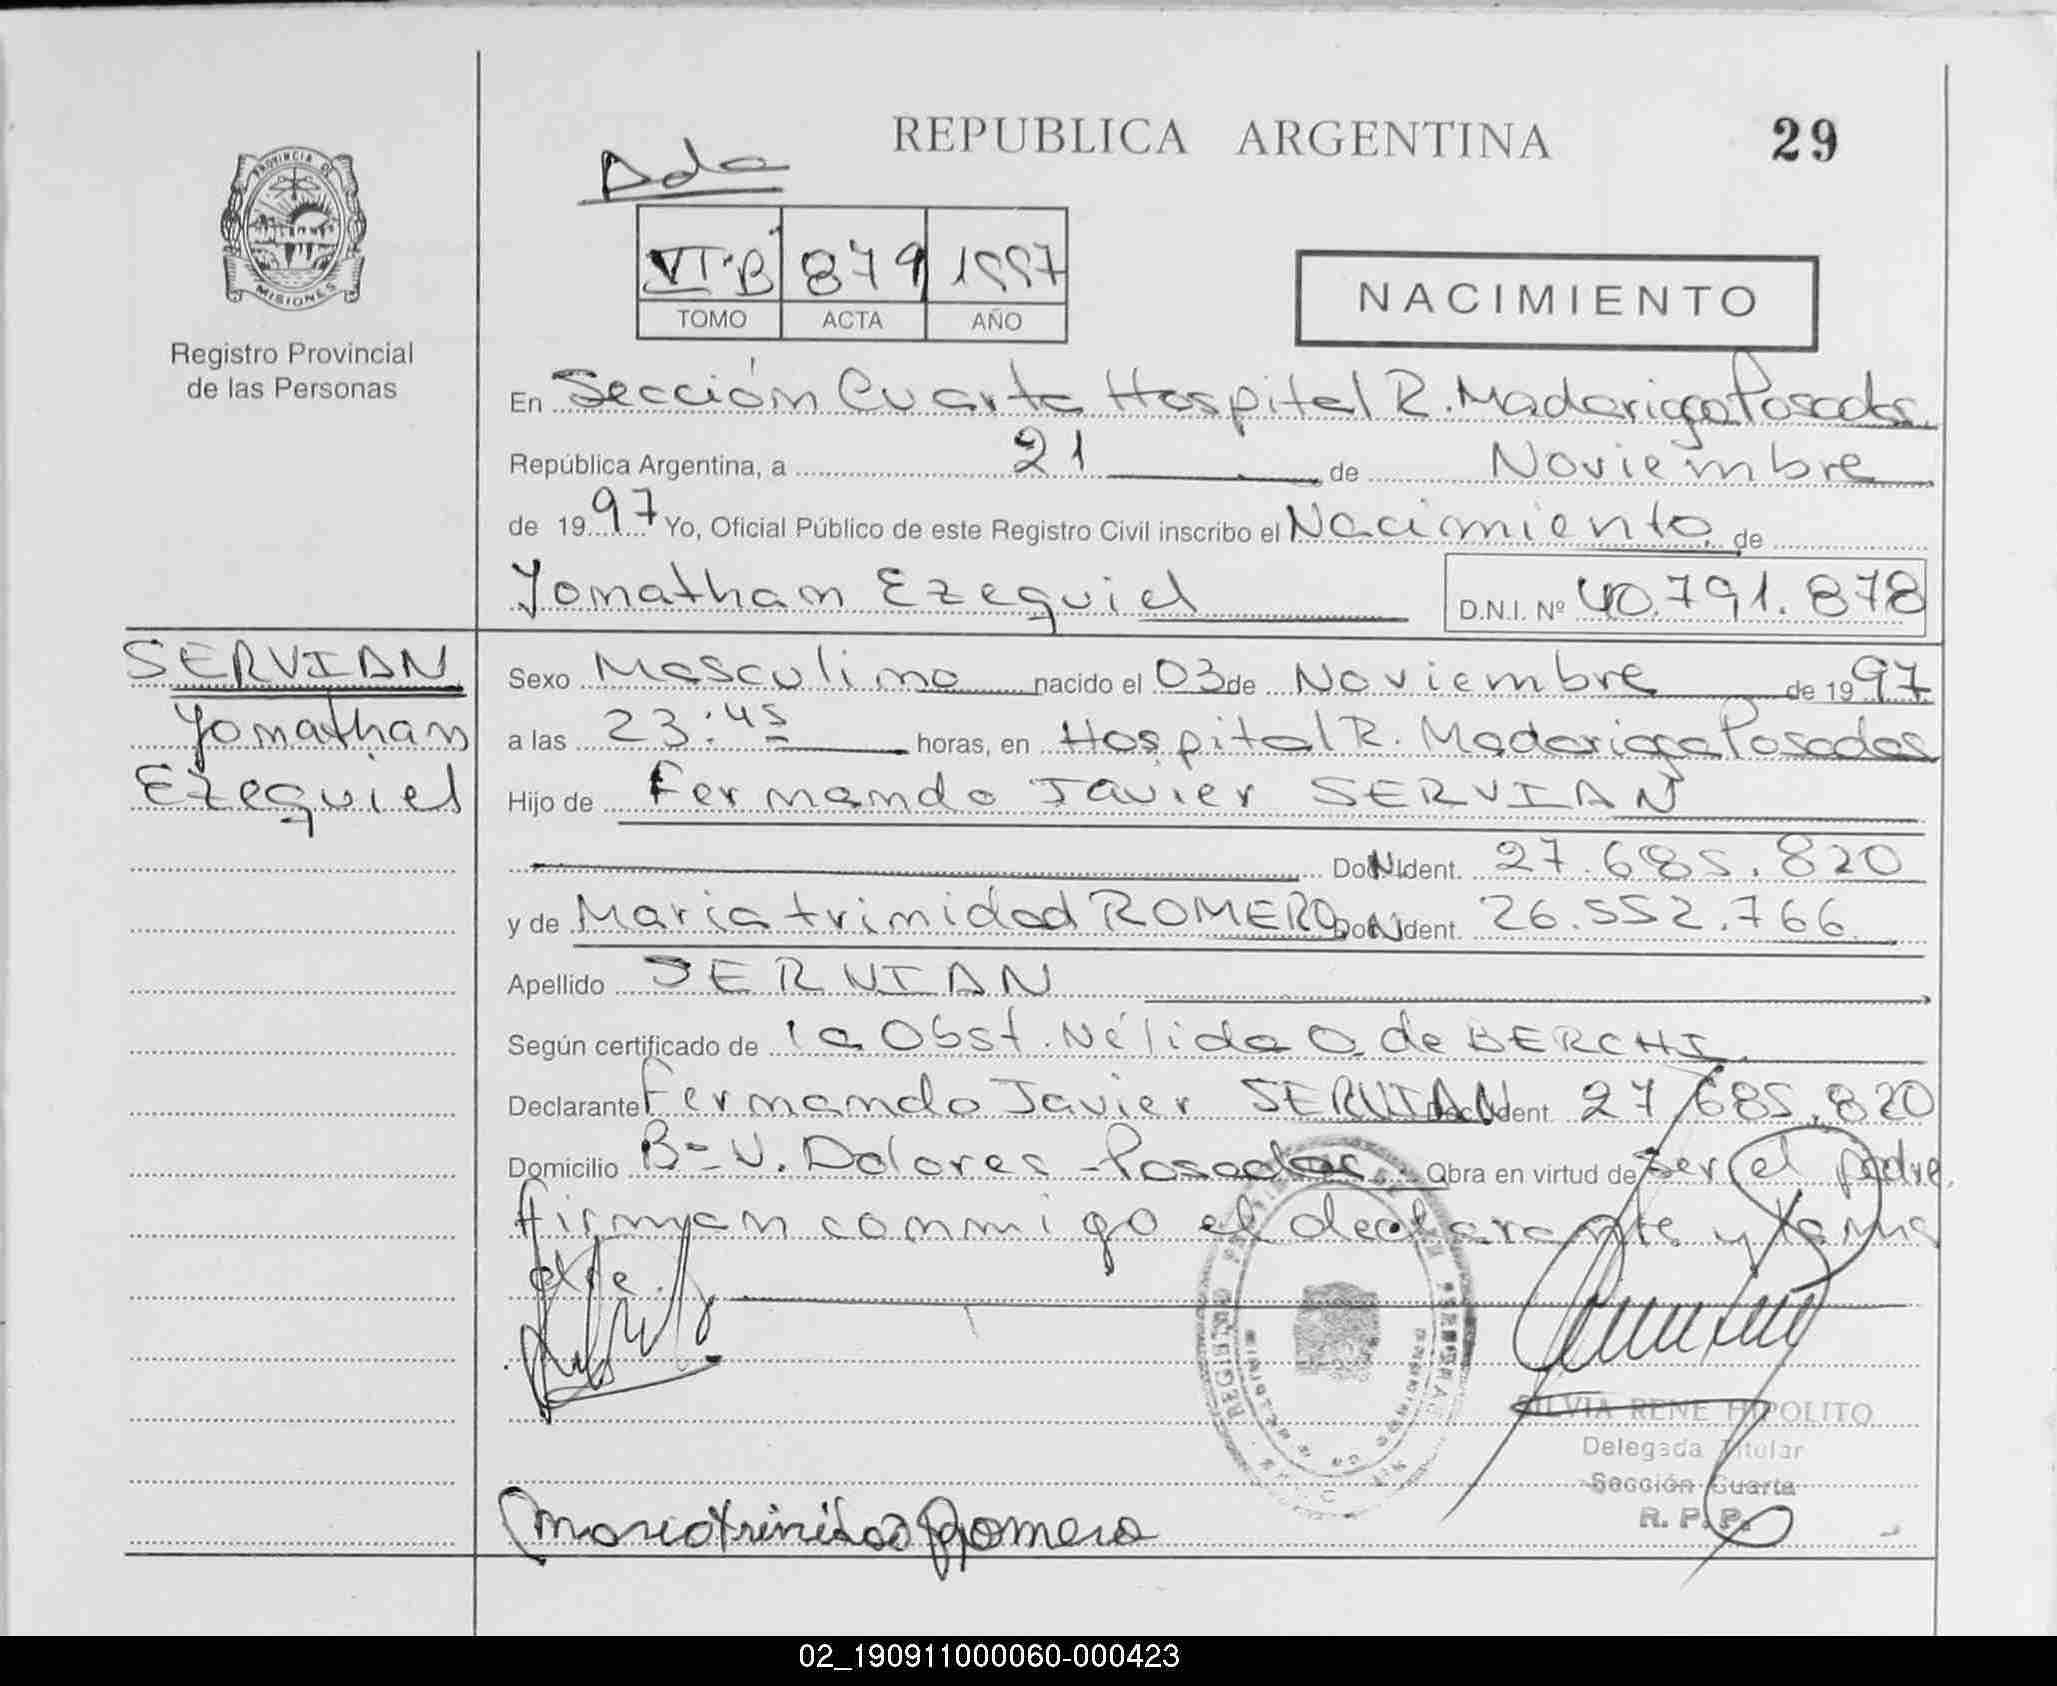 REPUBLICA ARGENTINA
29
PROVINCIA DE
MISIONES
Registro Provincial
de las Personas
VI·B 879 1997
TOMO ACTA AÑO
NACIMIENTO
En Sección Cuarta Hospital R. Madariaga Posadas.
República Argentina, a 21 de Noviembre
de 1997 Yo, Oficial Público de este Registro Civil inscribo el Nacimiento de
Yonathan Ezequiel D.N.I. Nº 40.791.878
SERVIAN
Yonathan
Ezequiel
Sexo Masculino nacido el 03 de Noviembre de 1997
a las 23:45 horas, en Hospital R. Madariaga Posadas
Hijo de Fernando Javier SERVIAN
Doc. Ident. 27.685.820
y de Maria trinidad ROMERO Doc. Ident. 26.552.766
Apellido SERVIAN
Según certificado de la Obst. Nélida O. de BERCHI
Declarante Fernando Javier SERVIAN Doc. Ident 27.685.820
Domicilio Bº V. Dolores - Posadas Obra en virtud de ser el padre,
firman conmigo el declarante y la ma
dre.
SILVIA RENE HIPOLITO
Delegada Titular
Sección Cuarta
R. P. P.
Maria trinidad Romero
02_190911000060-000423